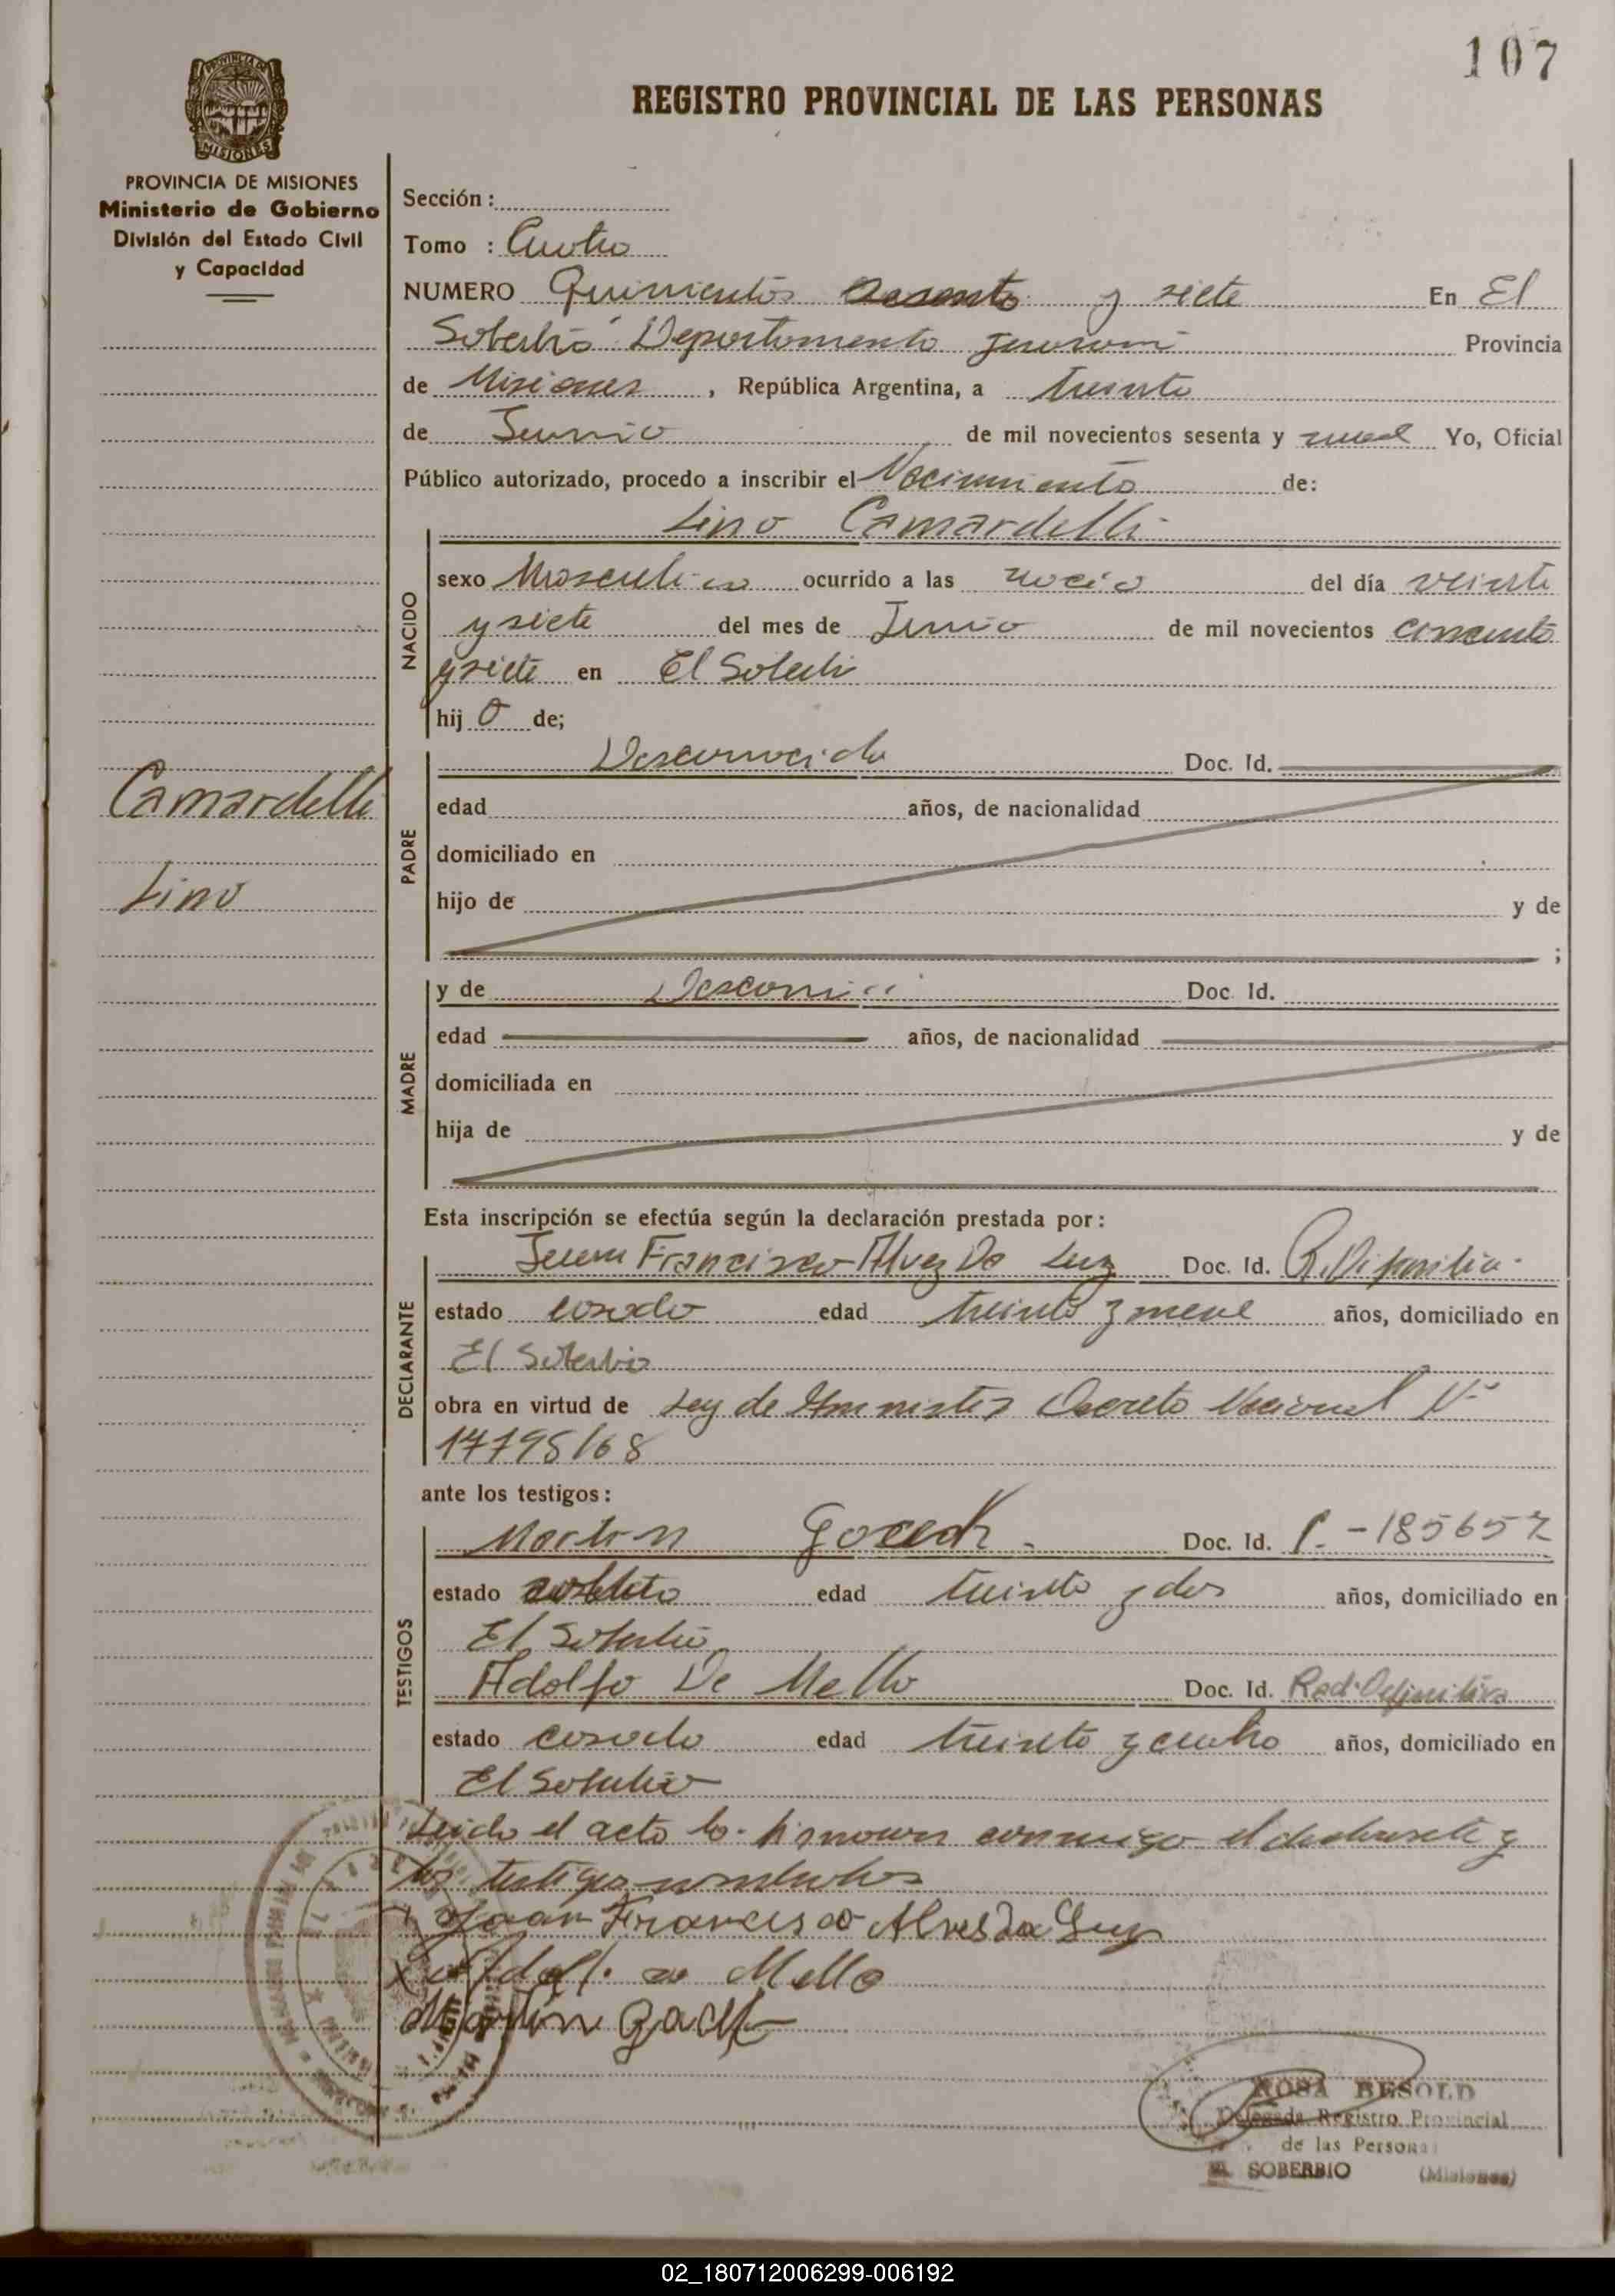 107
REGISTRO PROVINCIAL DE LAS PERSONAS
PROVINCIA DE MISIONES
Ministerio de Gobierno
División del Estado Civil
y Capacidad
Sección :
Tomo : Cuatro
NUMERO Quinientos sesenta y siete En El
Soberbio Departamento Guaraní Provincia
de Misiones , República Argentina, a treinta
de Junio de mil novecientos sesenta y nueve Yo, Oficial
Público autorizado, procedo a inscribir el Nacimiento de:
Lino Camardelli
NACIDO
sexo Masculino ocurrido a las del día veinte
y siete del mes de Junio de mil novecientos cincuenta
y siete en El Soberbio
hij o de;
PADRE
Desconocido Doc. Id.
edad años, de nacionalidad
domiciliado en
hijo de y de
;
Camardelli
Lino
MADRE
y de Doc. Id.
edad años, de nacionalidad
domiciliada en
hija de y de
Esta inscripción se efectúa según la declaración prestada por :
DECLARANTE
Juan Francisco Alvez Da Luz Doc. Id.
estado casado edad treinta y nueve años, domiciliado en
El Soberbio
obra en virtud de Ley de Amnistia Decreto Nacional Nº
17795/68
ante los testigos :
TESTIGOS
Martin Doc. Id. 185657
estado edad treinta y dos años, domiciliado en
El Soberbio
Adolfo De Mello Doc. Id. Rad. Definitiva
estado casado edad treinta y cuatro años, domiciliado en
El Soberbio
Leido el acta la firmaron conmigo el declarante y
los testigos nombrados
Juan Francisco Alves Da Luz
Mello
Martin
ROSA BESOLD
Delegada Registro Provincial
de las Personas
EL SOBERBIO (Misiones)
02_180712006299-006192